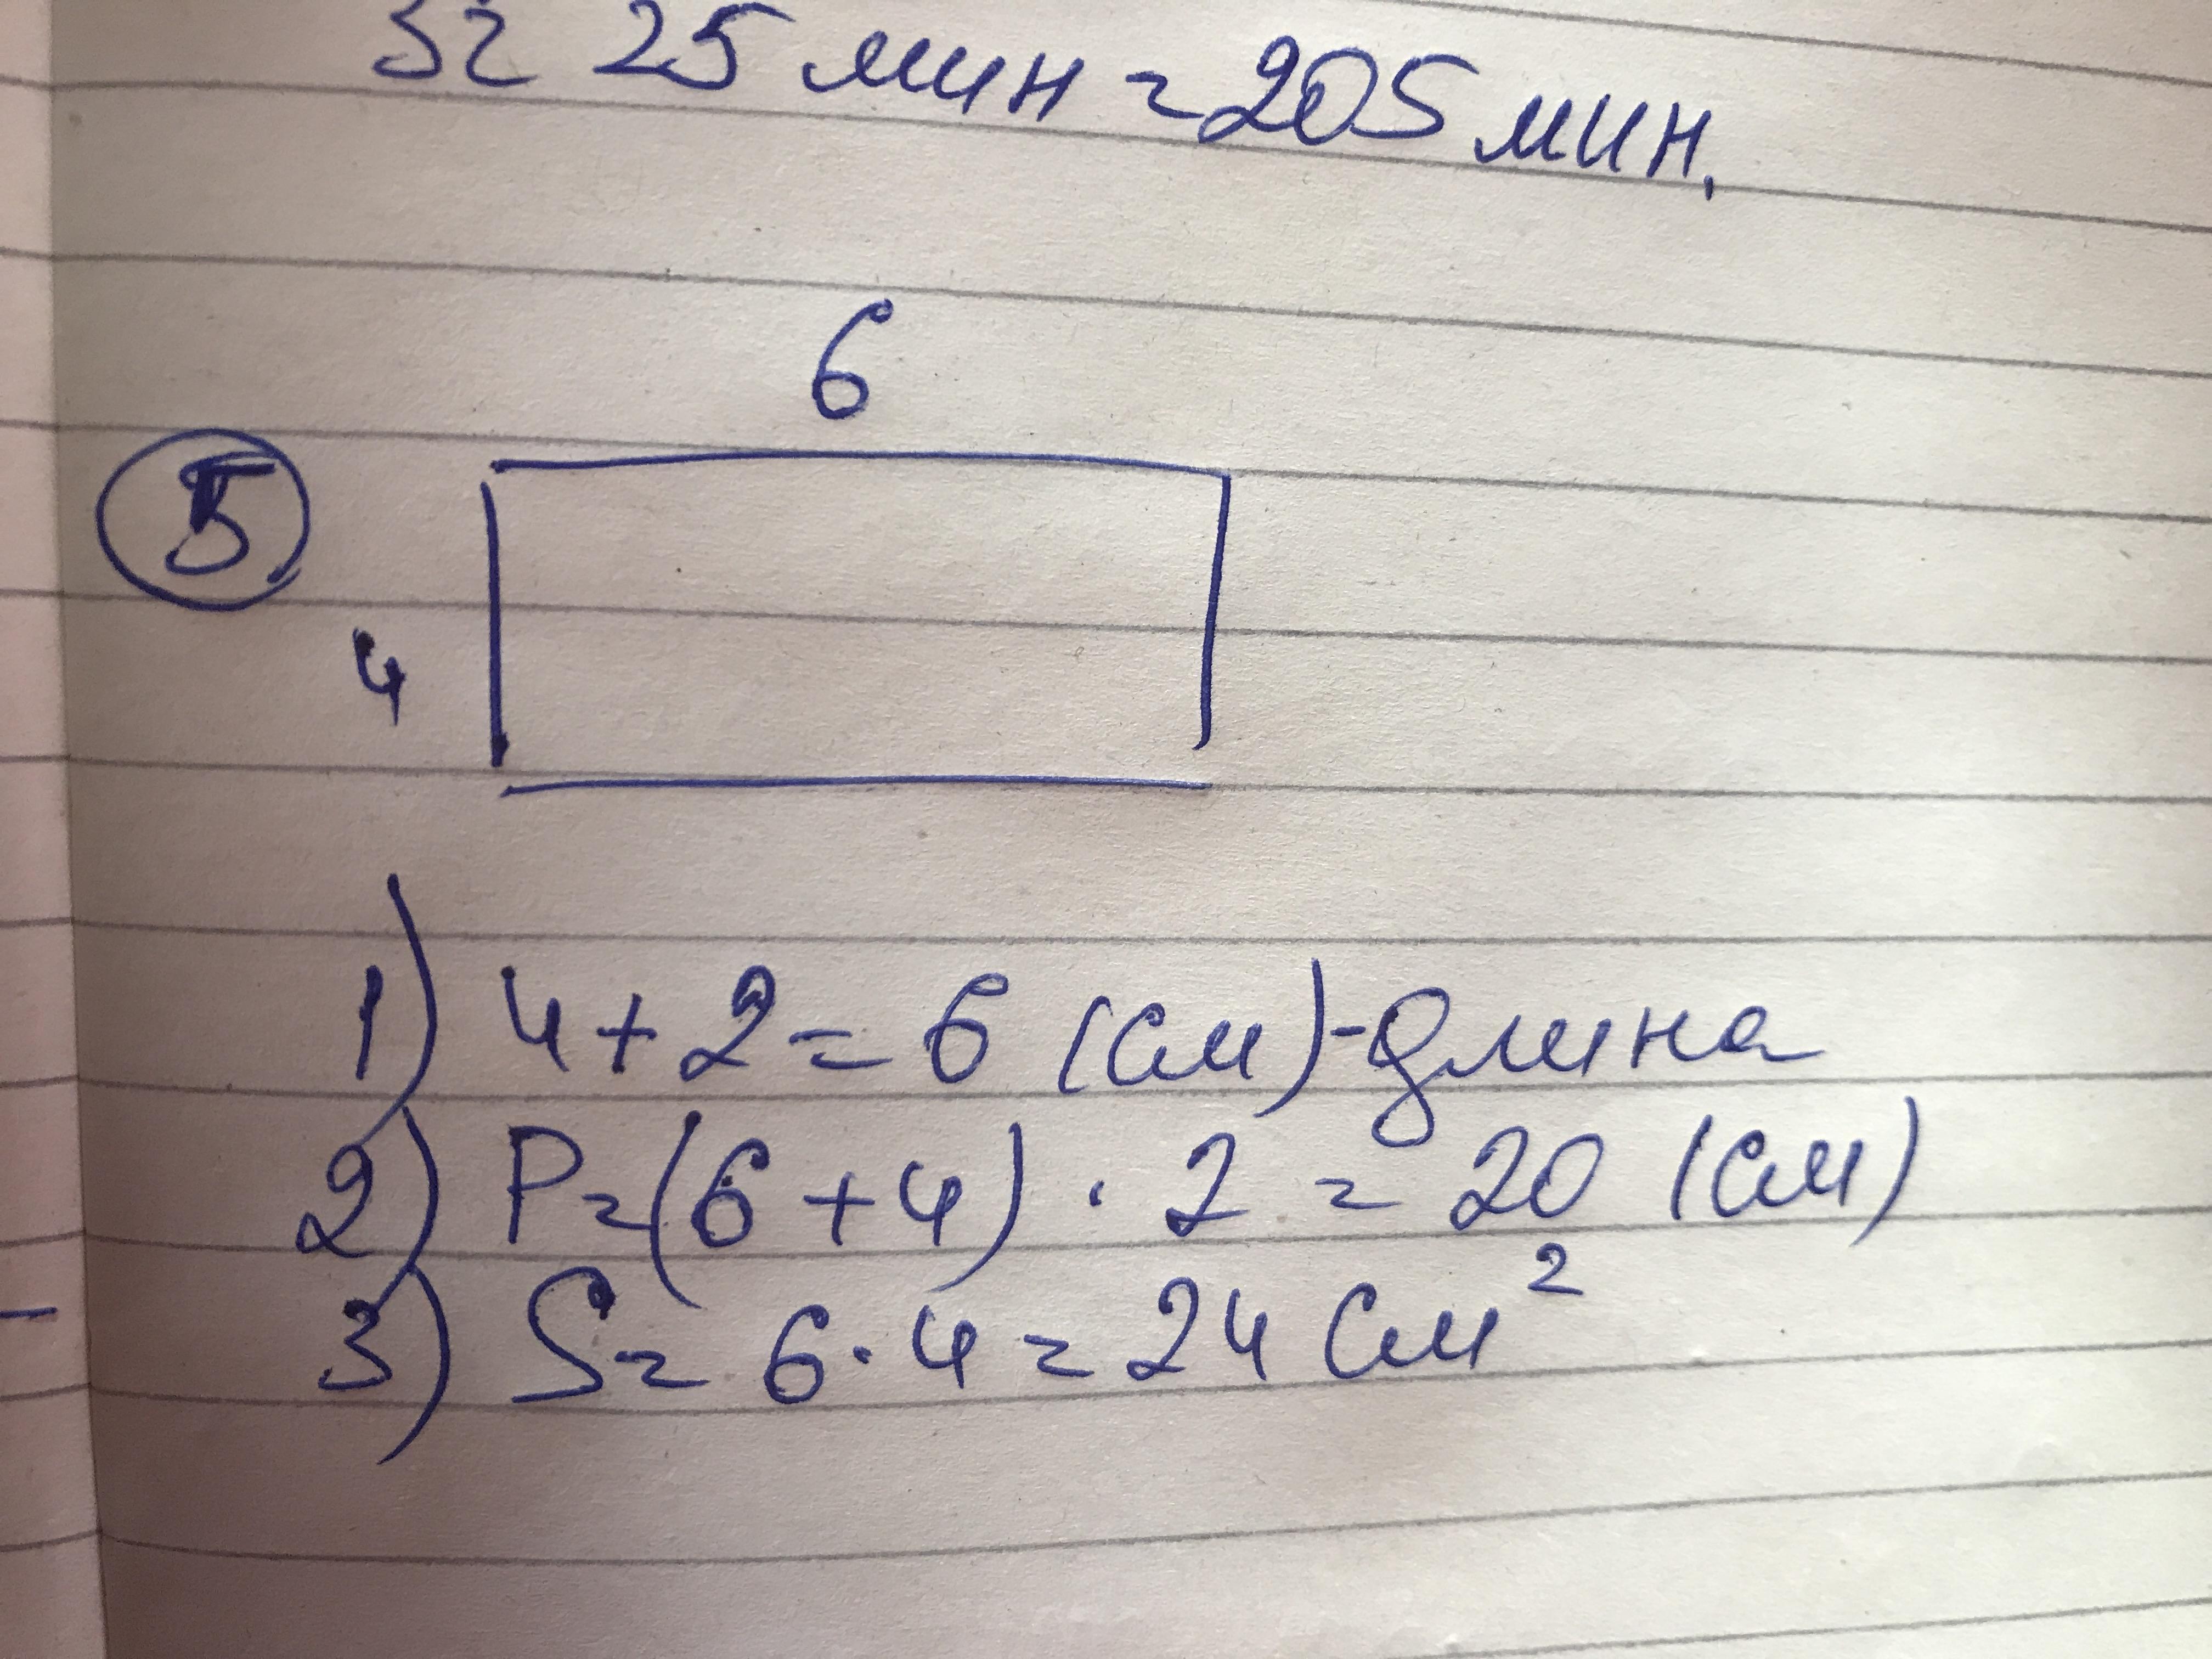 3ч 25 мин = 205 мин.
6
5
4
1) 4 + 2 = 6 (см) - длина
2) P = (6 + 4) · 2 = 20 (см)
3) S = 6 · 4 = 24 см²